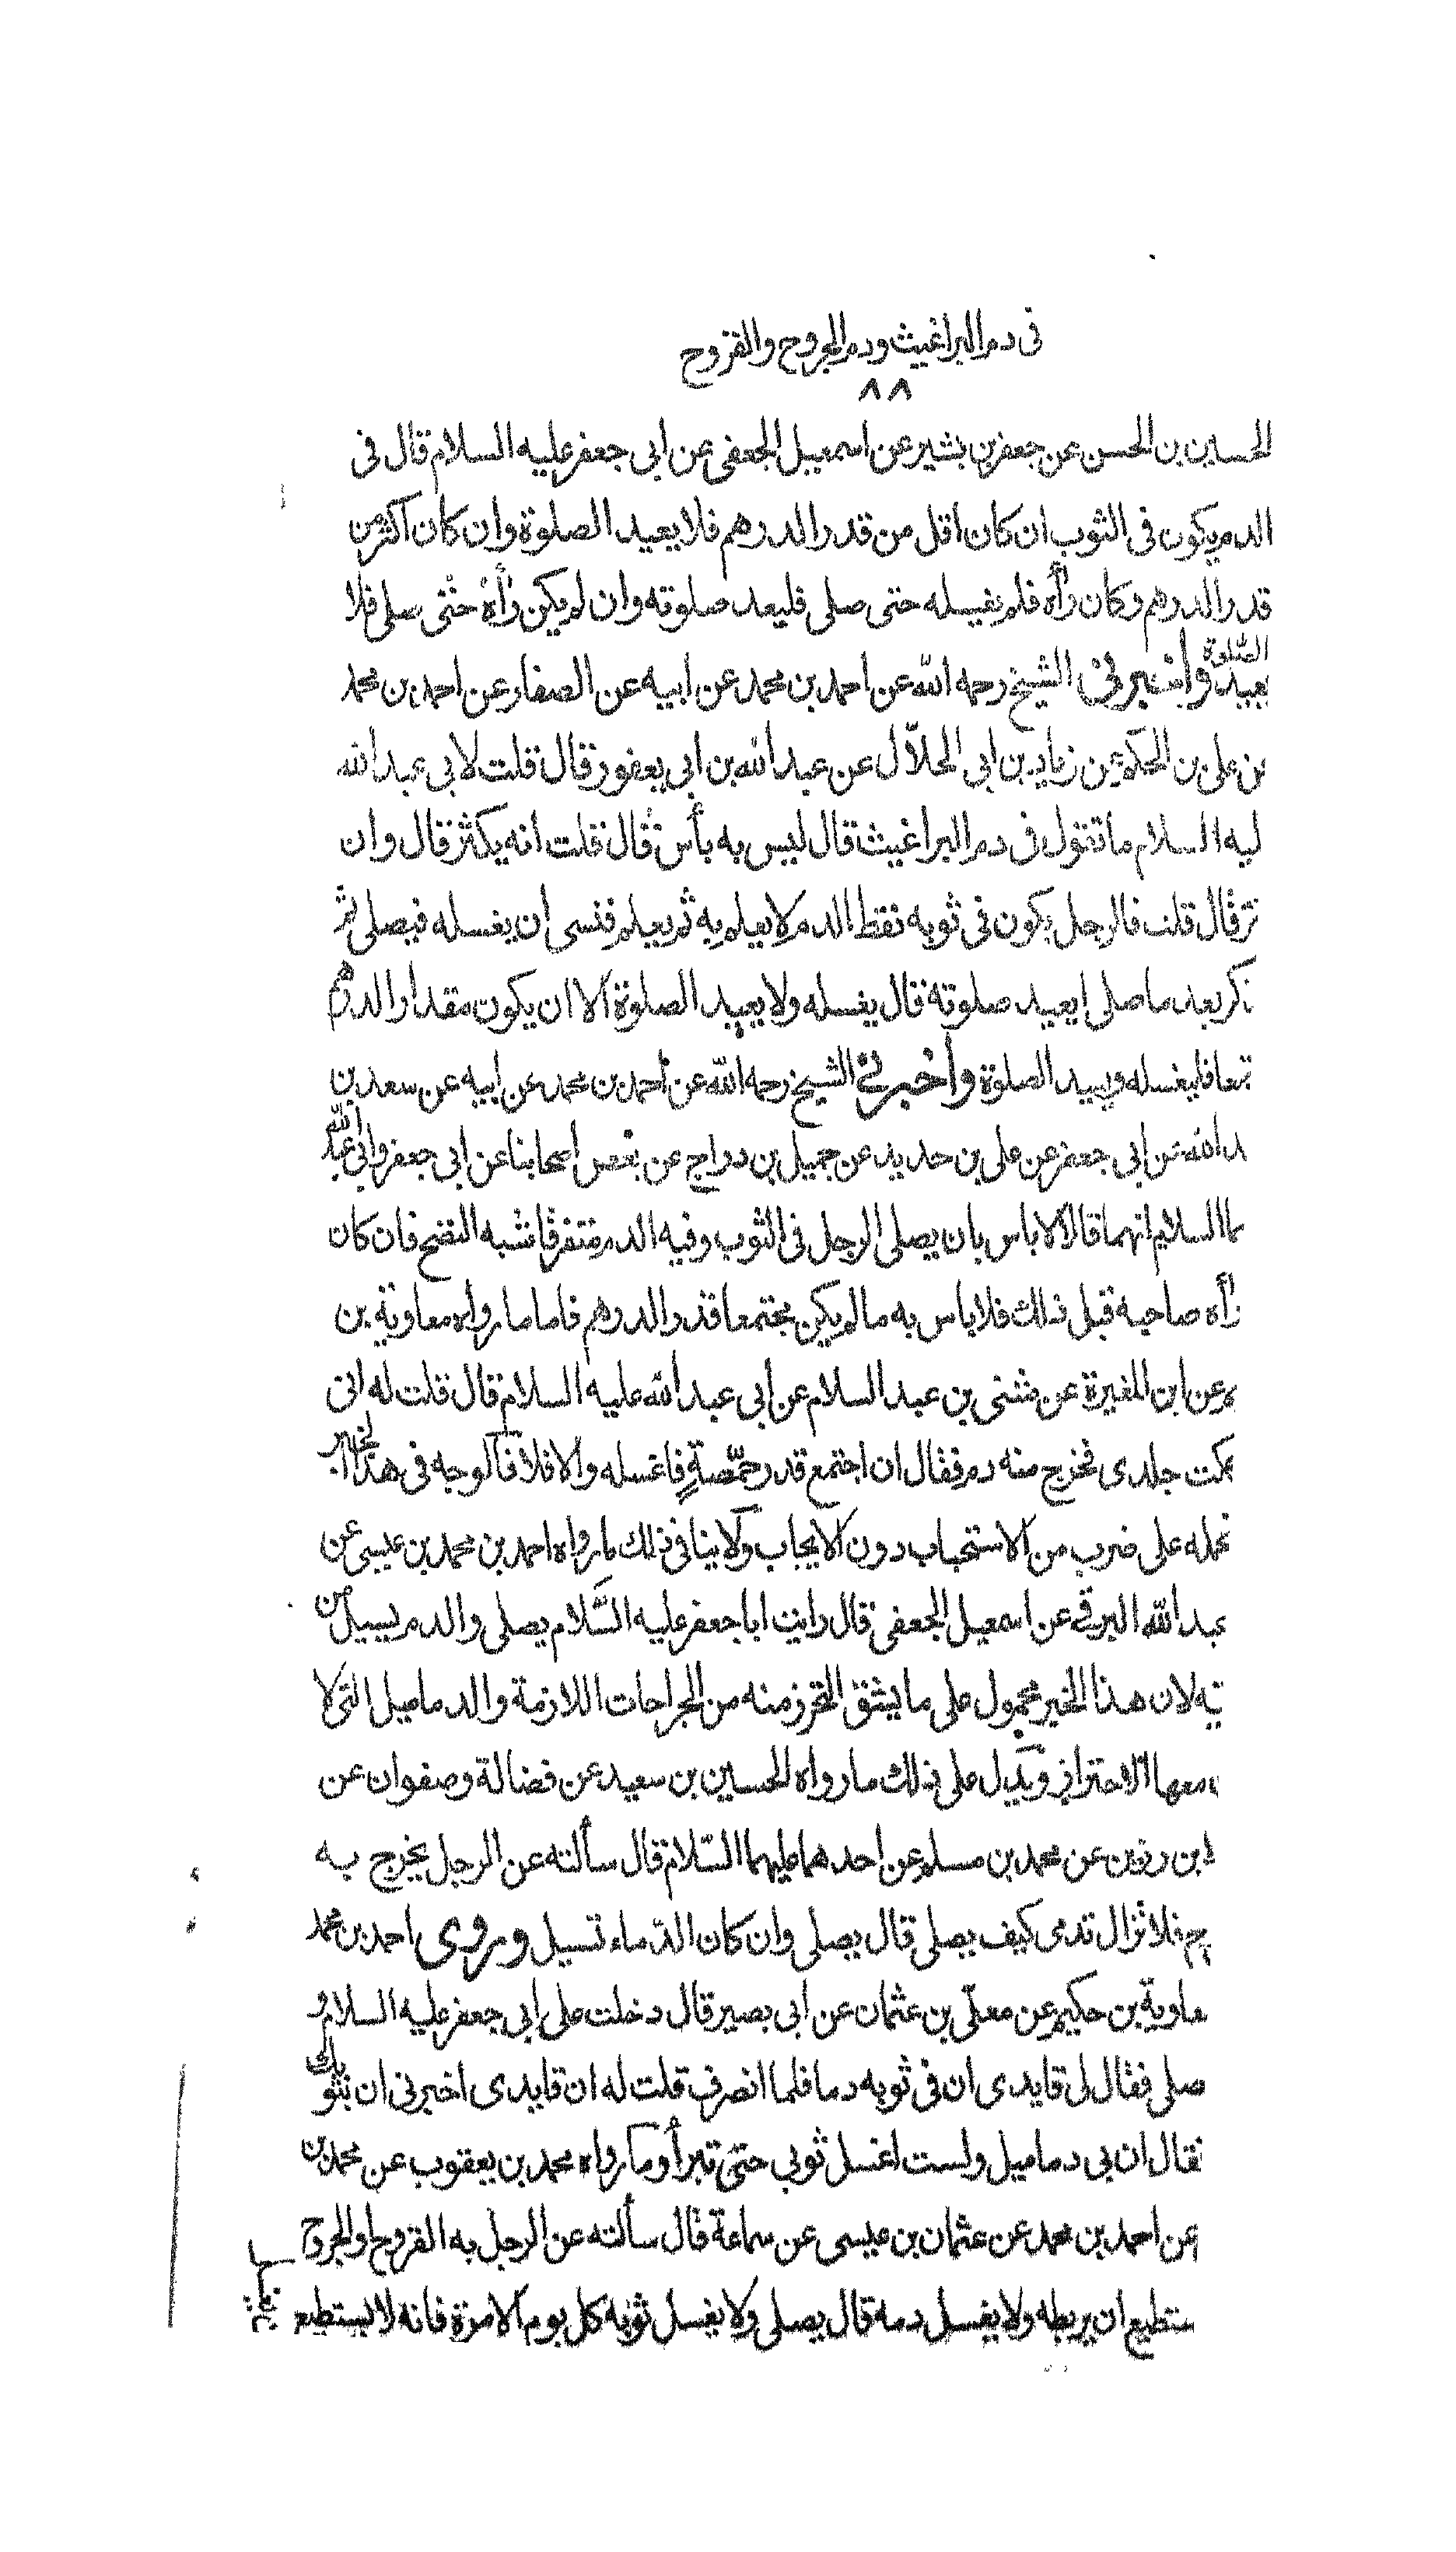 فى دم البراغيث ودم الجروح والقروح
٨٨
الحسين بن الحسن عن جعفر بن بشير عن اسمعيل الجعفى عن ابى جعفر عليه السلام قال فى
الدم يكون فى الثوب ان كان اقل من قدر الدرهم فلا يعيد الصلوة وان كان اكثر من
قدر الدرهم وكان رأه فلم يغسله حتى صلى فليعد صلوته وان لم يكن رأه حتى صلى فلا
يعيد الصّلوة وأخبرنى الشيخ رحمه الله عن احمد بن محمد عن ابيه عن الصفار عن احمد بن محمد
عن على بن الحكم عن زياد بن ابى الحلّال عن عبد الله بن ابى يعفور قال قلت لابى عبد الله
ليه السلام ما تقول فى دم البراغيث قال ليس به بأس قال قلت انه يكثر قال وان
ثر قال قلت فالرجل يكون فى ثوبه نقط الدم لا يعلم به ثم يعلم فنسى ان يغسله فيصلى ثم
ذكر بعد ما صلى ايعيد صلوته قال يغسله ولا يعيد الصلوة الا ان يكون مقدار الدرهم
تمعا فليغسله ويعيد الصلوة وأخبرنى الشيخ رحمه الله عن احمد بن محمد عن ابيه عن سعد بن
بد الله عن ابى جعفر عن على بن حديد عن جميل بن دراج عن بعض اصحابنا عن ابى جعفر وابى عبد الله
ما السلام انهما قالا لا باس بان يصلى الرجل فى الثوب وفيه الدم متفرقا شبه النضح فان كان
رأه صاحبه قبل ذلك فلا باس به ما لم يكن مجتمعا قدر الدرهم فاما ما رواه معاوية بن
م عن ابن المغيرة عن مثنى بن عبد السلام عن ابى عبد الله عليه السلام قال قلت له انى
حككت جلدى فخرج منه دم فقال ان اجتمع قدر حمّصةٍ فاغسله والا فلا فالوجه فى هذا الخبر
نحمله على ضرب من الاستحباب دون الايجاب ولا ينافى ذلك ما رواه احمد بن محمد بن عيسى عن
عبد الله البرقى عن اسمعيل الجعفى قال رايت ابا جعفر عليه السّلام يصلى والدم يسيل من
قه لان هذا الخبر محمول على ما يشق التحرز منه من الجراحات اللازمة والدماميل التى لا
معها الاحتراز ويدل على ذلك ما رواه الحسين بن سعيد عن فضالة وصفوان عن
بن رزين عن محمد بن مسلم عن احدهما عليهما السّلام قال سألته عن الرجل يخرج به
ح فلا تزال تدمى كيف يصلى قال يصلى وان كان الدّماء تسيل وروى احمد بن محمد
معاوية بن حكيم عن معلّى بن عثمان عن ابى بصير قال دخلت على ابى جعفر عليه السلام و
صلى فقال لى قايدى ان فى ثوبه دما فلما انصرف قلت له ان قايدى اخبرنى ان بثوبك
فقال ان بى دماميل ولست اغسل ثوبى حتى تبرأ وما رواه محمد بن يعقوب عن محمد بن
عن احمد بن محمد عن عثمان بن عيسى عن سماعة قال سألته عن الرجل به القروح او الجروح
ستطيع ان يربطه ولا يغسل دمه قال يصلى ولا يغسل ثوبه كل يوم الا مرة فانه لا يستطيع